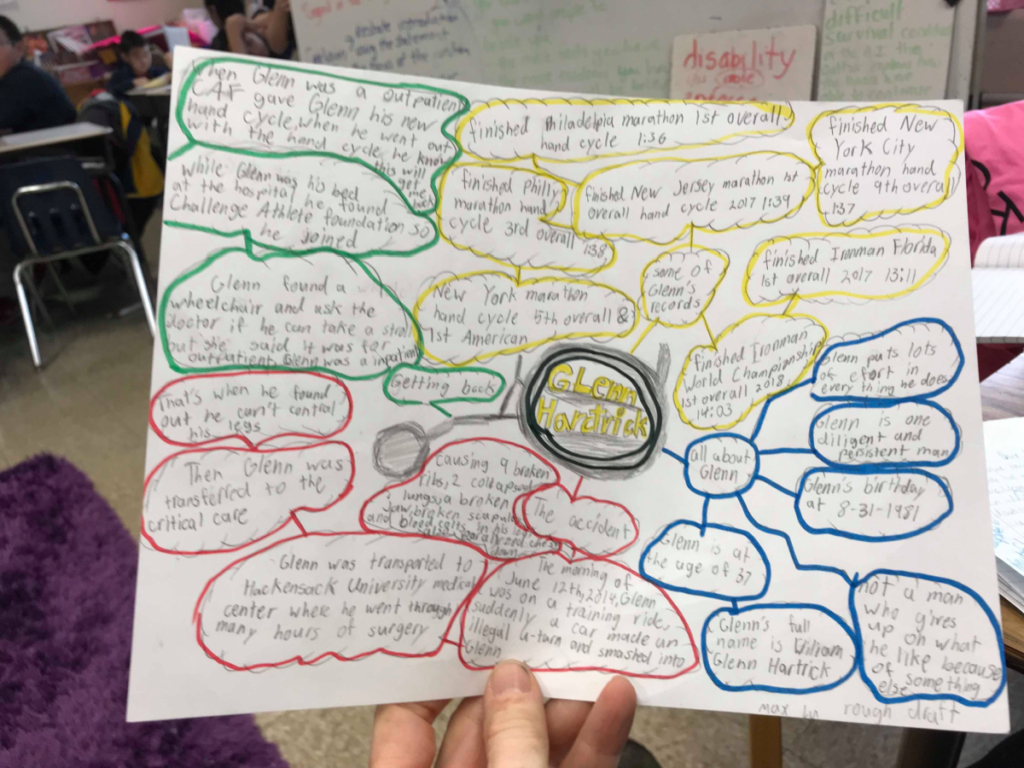 disability
difficult
survival
When Glenn was a outpatient
CAF gave Glenn his new
hand cycle, when he went out
with the hand cycle, he know
this will
get
me
back
while Glenn was his bed
at the hospital he found
Challenge Athlete foundation so
he joined
Glenn found a
wheelchair and ask the
doctor if he can take a stroll
but she said it was for
outpatient, Glenn was a inpatient
Getting back
finished Philadelpia marathon 1st overall
hand cycle 1:36
finished Philly
marathon hand
cycle 3rd overall 1:38
finished New Jersey marathon 1st
overall hand cycle 2017 1:39
finished New
York City
marathon hand
cycle 9th overall
1:37
New York marathon
hand cycle 5th overall &
1st American
some of
Glenn's
records
finished Ironman Florida
1st overall 2017 13:11
finished Ironman
World Championship
1st overall 2018
14:03
GLenn
Hartrick
That's when he found
out he can't control
his legs
Then Glenn was
transferred to the
critical care
causing 9 broken
ribs, 2 collapsed
lungs, a broken
jaw, broken scapula
and blood clots in his legs
also paralyzed chest
down
The accident
Glenn was transported to
Hackensack University medical
center where he went through
many hours of surgery
The morning of
June 12th, 2014, Glenn
was on a training ride,
suddenly a car made an
illegal u-turn and smashed into
Glenn
all about
Glenn
Glenn puts lots
of efort in
every thing he does
Glenn is one
diligent and
persistent man
Glenn's birthday is
at 8-31-1981
Glenn is at
the age of 37
Glenn's full
name is William
Glenn Hartrick
not a man
who gives
up on what
he like because
of something
else
rough draft